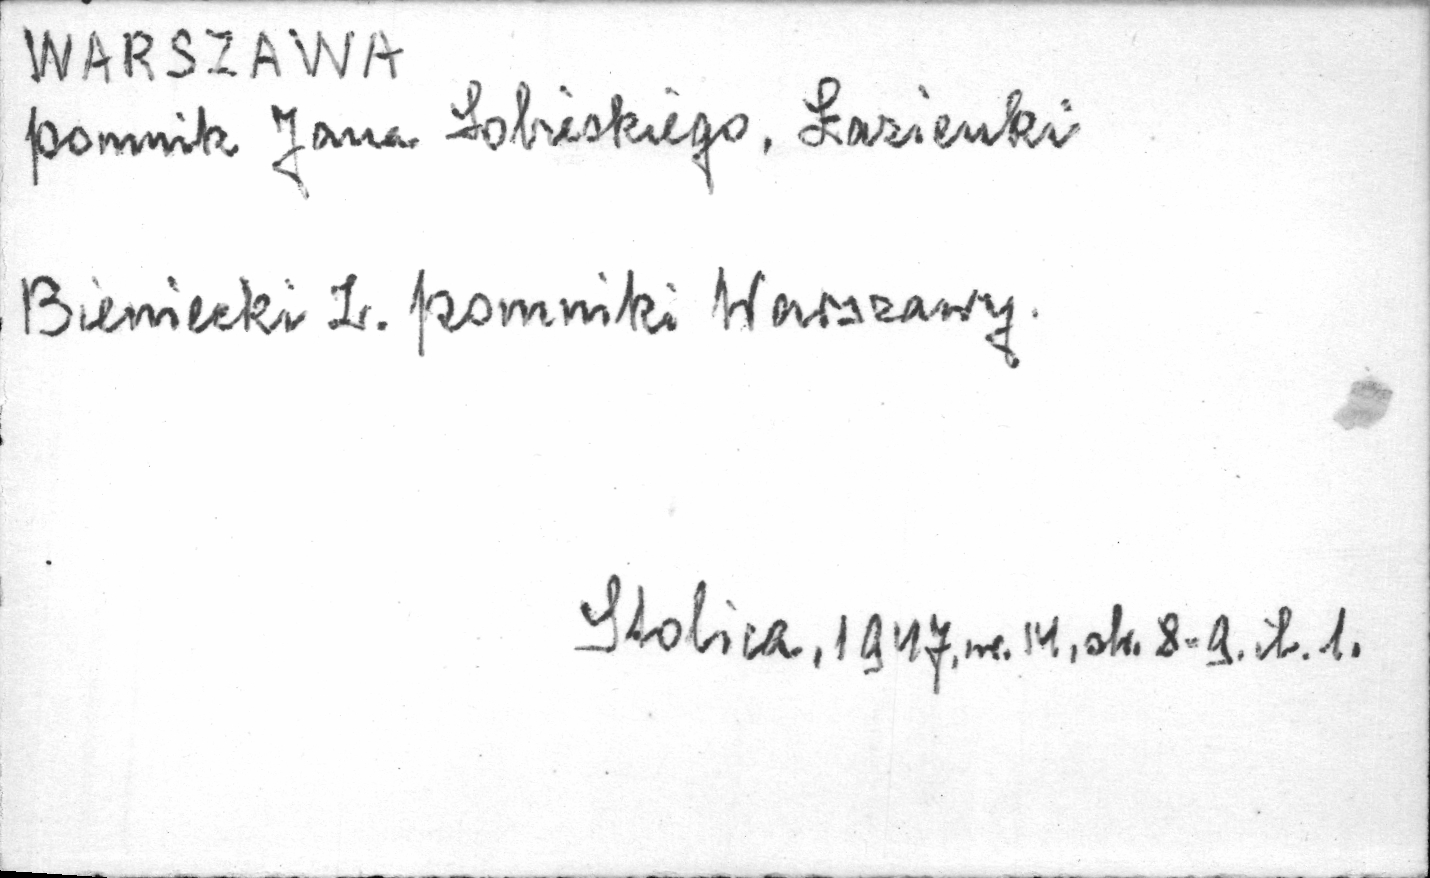 WARSZAWA
pomnik Jana Sobieskiego, Łazienki
Bieniecki Z. pomniki Warszawy.
Stolica, 1947, nr. 14, str. 8-9. il. 1.